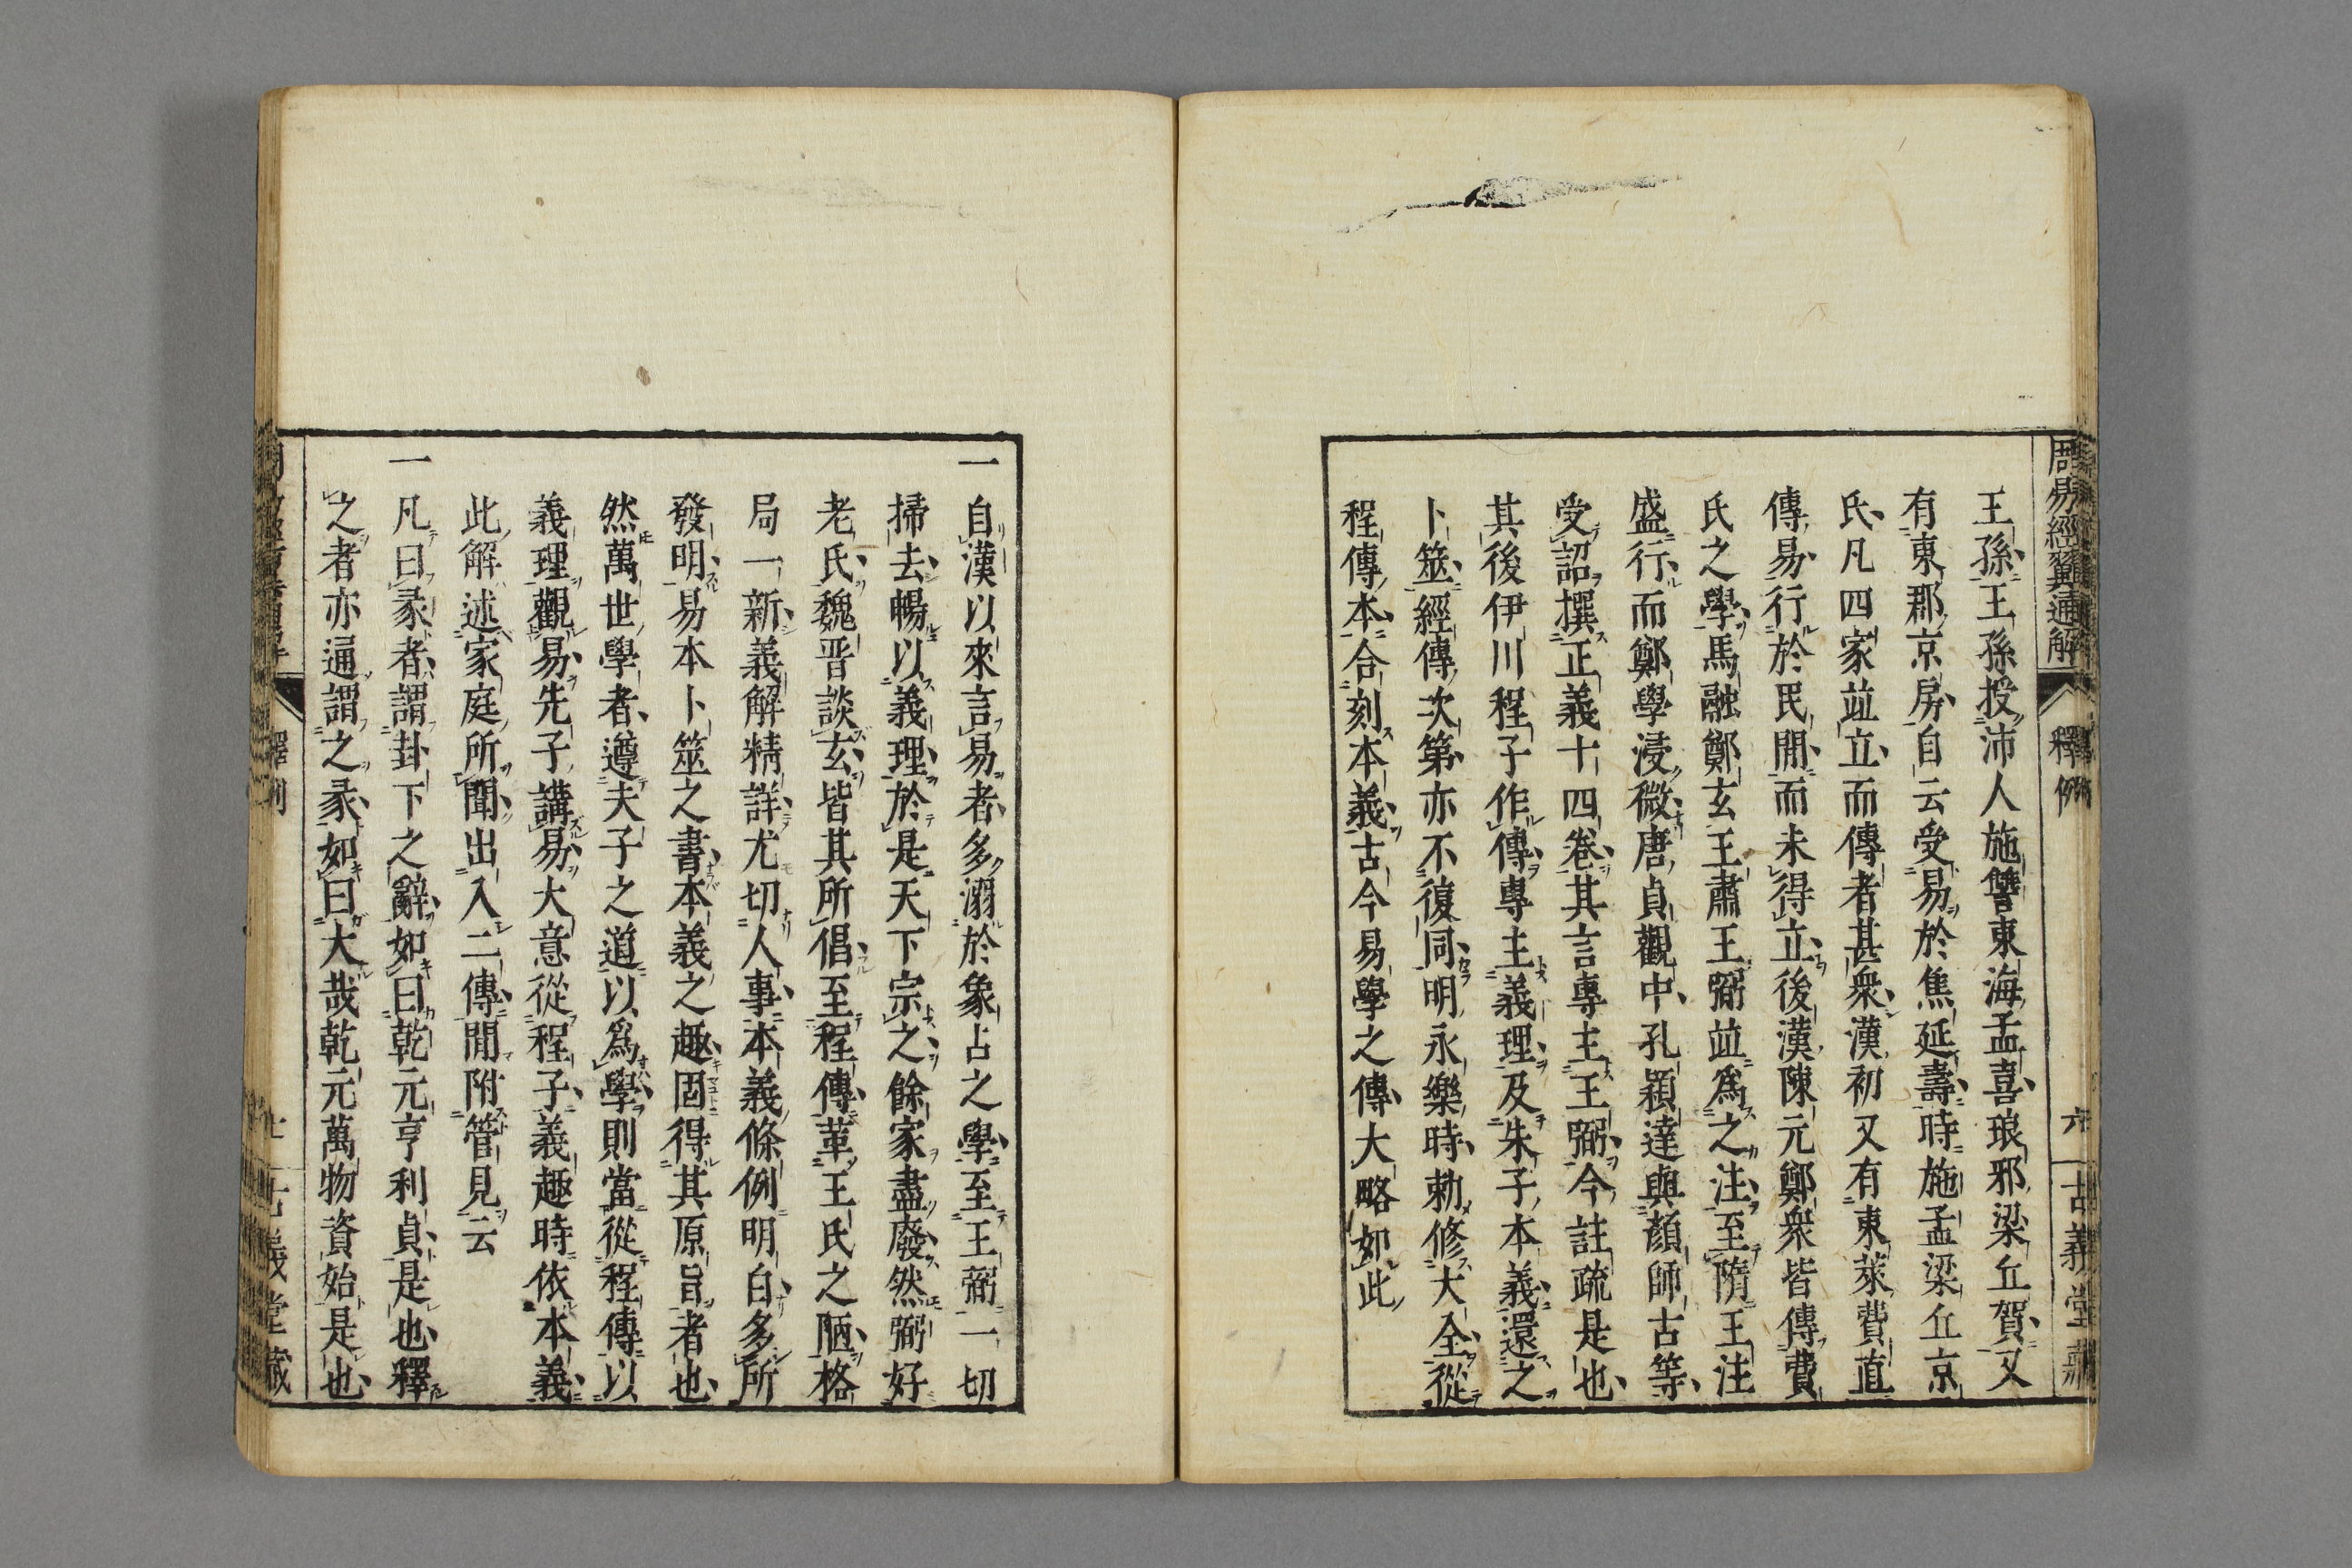 周易經翼通解
釋例
六
古義堂藏
王孫王孫授沛人施讐東海孟喜琅邪梁丘賀又
有東郡京房自云受易於焦延壽時施孟梁丘京
氏凡四家竝立而傳者甚衆漢初又有東萊費直
傳易行於民間而未得立後漢陳元鄭衆皆傳費
氏之學馬融鄭玄王肅王弼竝爲之注至隋王注
盛行而鄭學浸微唐貞觀中孔穎達與顏師古等
受詔撰正義十四卷其言專主王弼今註疏是也
其後伊川程子作傳專主義理及朱子本義還之
卜筮經傳次第亦不復同明永樂時勅修大全從
程傳本合刻本義古今易學之傳大略如此
一自漢以來言易者多溺於象占之學至王弼一切
掃去暢以義理於是天下宗之餘家盡廢然弼好
老氏魏晋談玄皆其所倡至程傳革王氏之陋格
局一新義解精詳尤切人事本義條例明白多所
發明易本卜筮之書本義之趣固得其原旨者也
然萬世學者遵夫子之道以爲學則當從程傳以
義理觀易先子講易大意從程子義趣時依本義
此解述家庭所聞出入二傳間附管見云
一凡曰彖者謂卦下之辭如曰乾元亨利貞是也釋
之者亦通謂之彖如曰大哉乾元萬物資始是也
釋例
七
古義堂藏